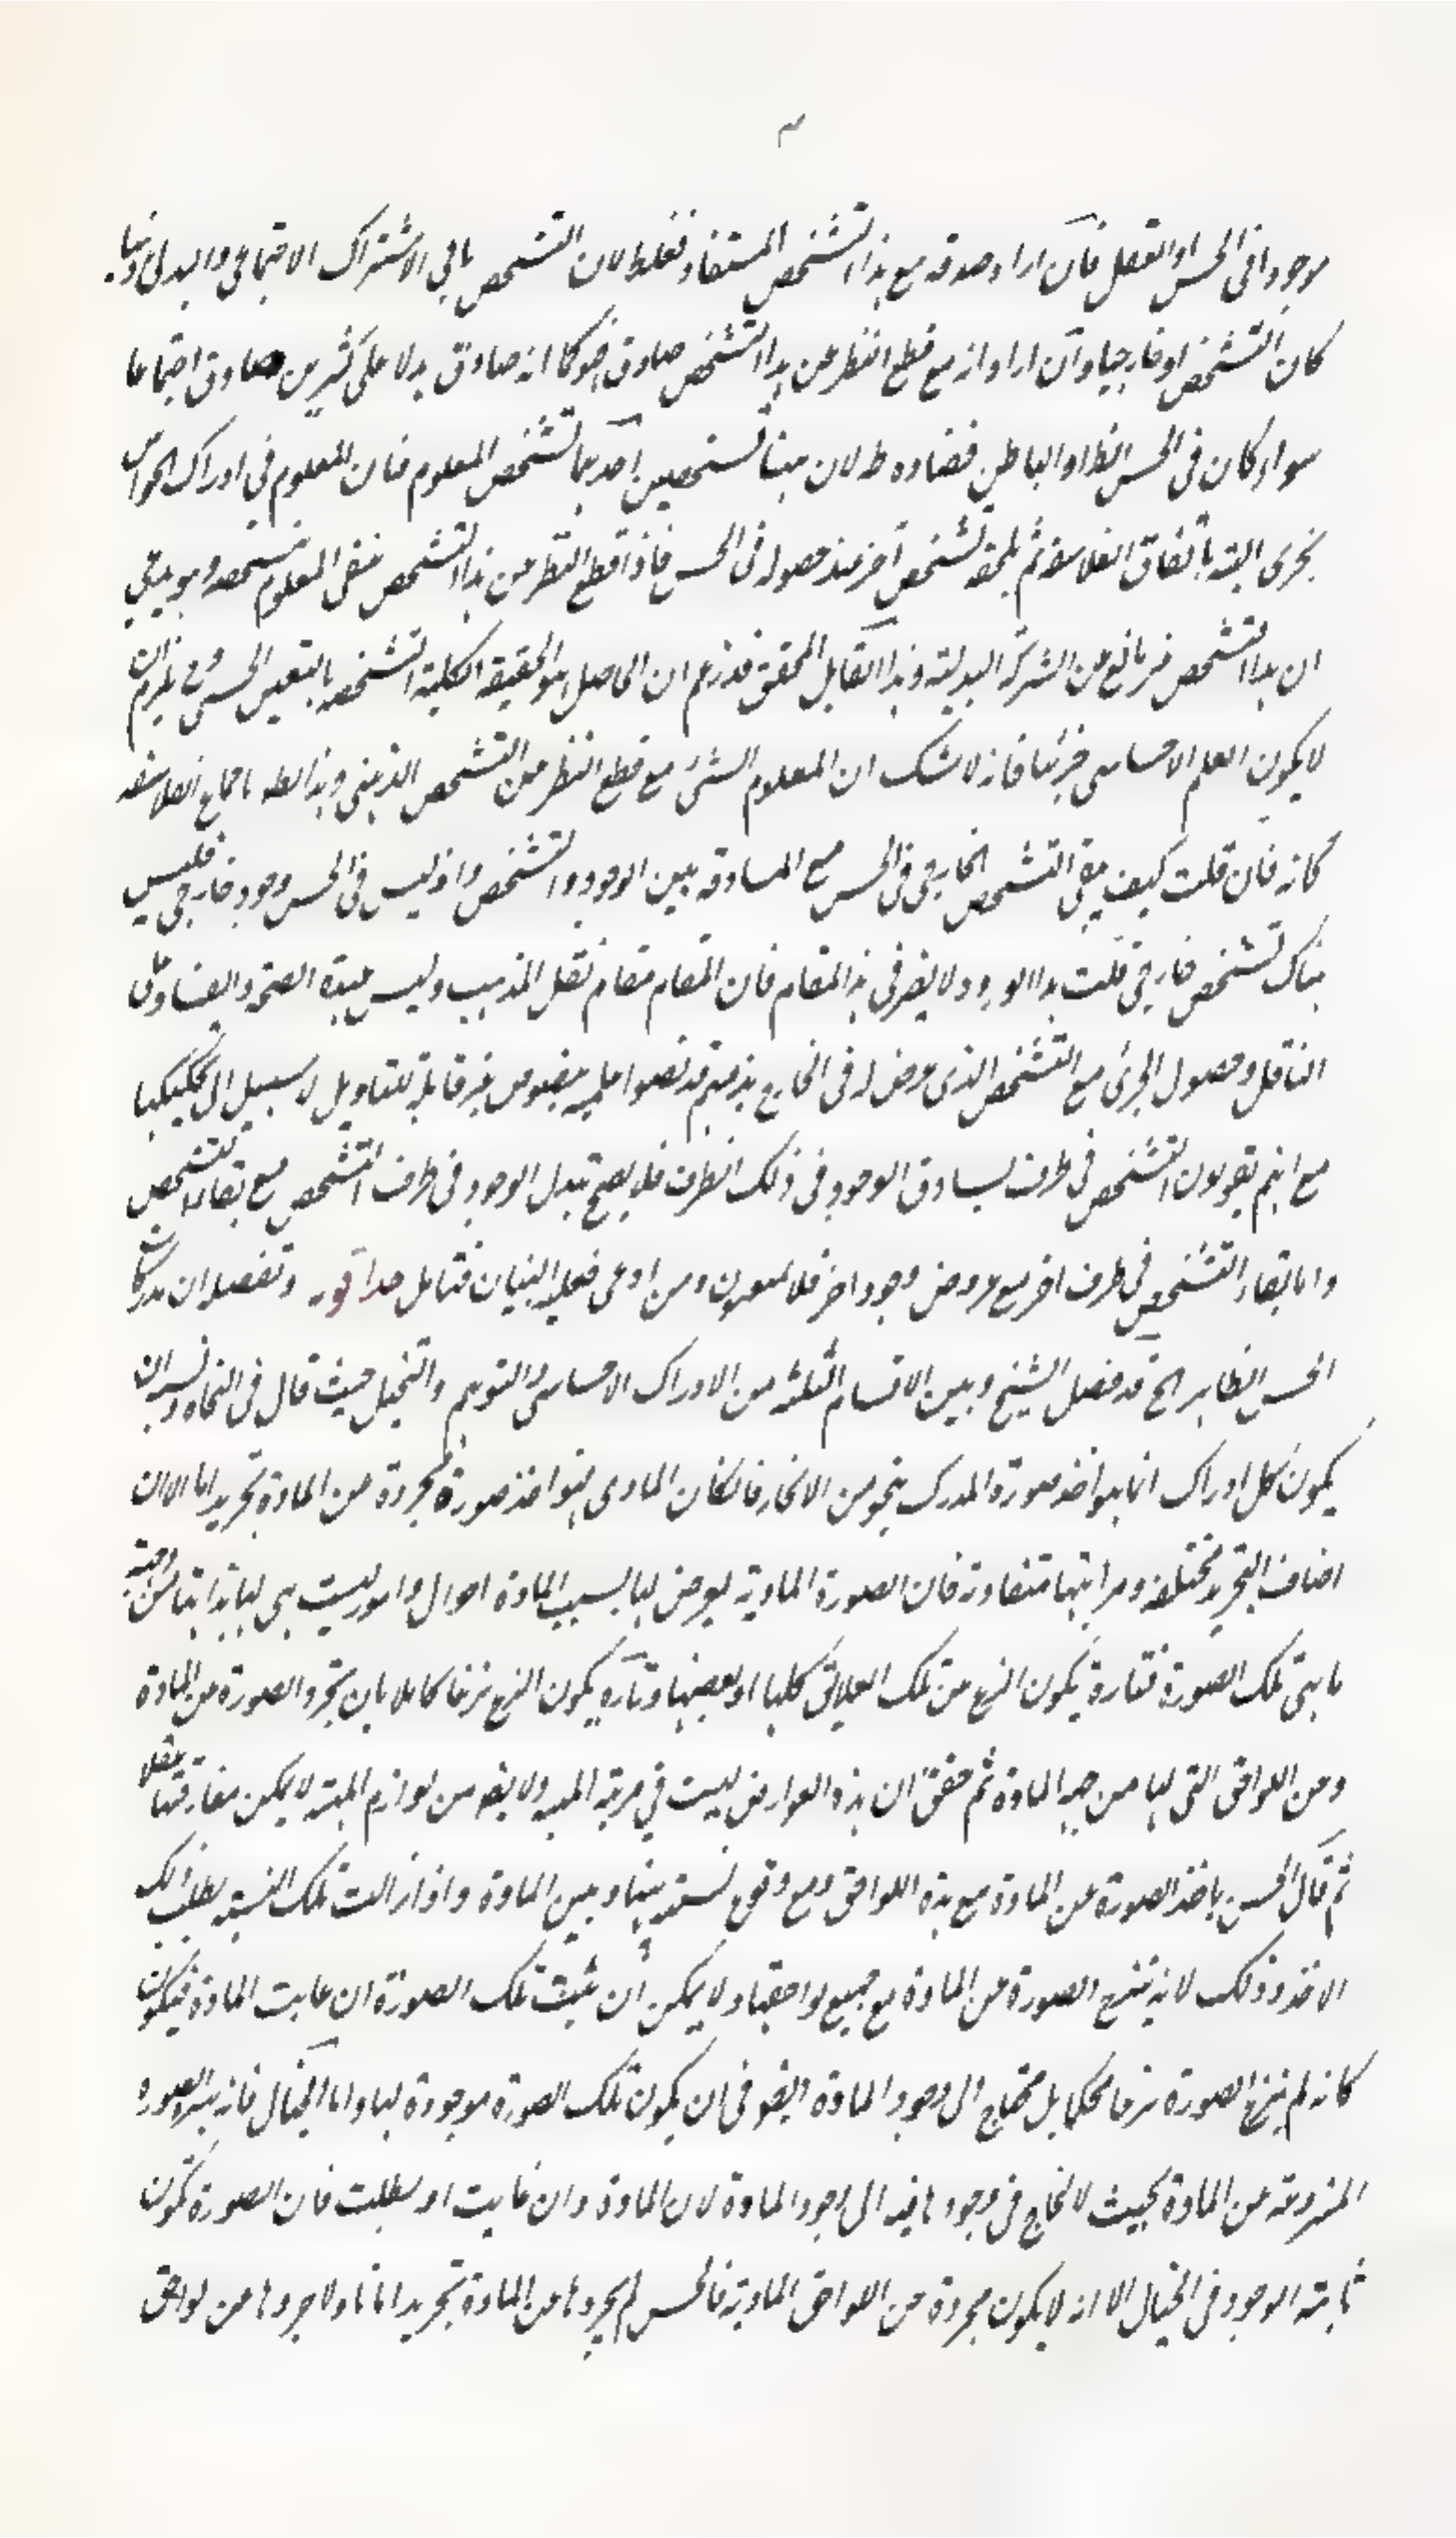 موجودا فى الحس او العقل فان اراد صدقه مع هذا التشخص المستفاد فغلط لان التشخص ينافى الاشتراك الاجتماعى والبدلى ذهنيا
كان التشخص او خارجيا وان اراد انه مع قطع النظر عن هذا التشخص صادق فهو كما انه صادق بدلا على كثيرين صادق اجتماعا
سواء كان فى الحس الظاهر او الباطن ففساده ظ لان هنا تشخصين احدهما تشخص المعلوم فان المعلوم فى ادراك الحواس
جزئى البتة باتفاق الفلاسفة ثم يلحقه تشخص آخر عند حصوله فى الحس فاذا قطع النظر عن هذا التشخص بقى المعلوم بتشخصه وهو
ان هذا التشخص غير مانع من الشركة البدلية وهذا القائل المحقق قد زعم ان الحاصل هو الحقيقة الكلية المتشخصة بالتعين الحسى وح يلزم ان
لا يكون العلم الاحساسى جزئيا فانه لا شك ان المعلوم الشئ مع قطع النظر عن التشخص الذهنى وهذا باجماع الفلاسفة
كانه فان قلت كيف يبقى التشخص الخارجى فى الحس مع المساوقة بين الوجود والتشخص واذ ليس فى الحس وجود خارجى فليس
هناك تشخص خارجى قلت هذا الورود لا يضر فى هذا المقام فان المقام مقام نقل المذهب وليس عهدة الصحة والفساد على
الناقل وحصول الجزئى مع التشخص الذى عرض له فى الخارج مذهبهم قد نصوا عليه بنصوص غير قابلة للتاويل لا سبيل الى تشكيكها
مع انهم يقولون التشخص فى ظرف يساوق الوجود فى ذلك الظرف فلا يصح تبدل الوجود فى ظرف التشخص مع بقاء التشخص
واما بقاء التشخص فى ظرف اخر مع عروض وجود اخر فلا يمنعون ومن ادعى فعليه البيان فتامل وتفصيله ان مدركات
الحس الظاهر الخ قد فصل الشيخ وبين الاقسام الثلثة من الادراك الاحساسى والتوهم والتخيل حيث قال فى النجاة ويشبه ان
يكون كل ادراك انما هو اخذ صورة المدرك بنحو من الانحاء فان كان المادى فهو اخذ صورة مجردة عن المادة تجريدا ما الا ان
اصناف التجريد مختلفة ومراتبها متفاوتة فان الصورة المادية يعرض لها بسبب المادة احوال وامور ليست هى لها بذاتها من جهة
ما هى تلك الصورة فتارة يكون النزع من تلك العلائق كلها او بعضها وتارة يكون النزع نزعا كاملا بان يجرد الصورة عن المادة
وعن اللواحق التى لها من جهة المادة ثم حقق ان هذه العوارض ليست فى مرتبة المهية ولا ايضا من لوازم المهية لا يمكن مفارقتها عقلا
ثم قال الحس ياخذ الصورة عن المادة مع هذه اللواحق ومع وقوع نسبة بينها وبين المادة واذا زالت تلك النسبة بطل ذلك
الاخذ وذلك لانه ينتزع الصورة عن المادة مع جميع لواحقها ولا يمكن ان يثبت تلك الصورة ان غابت المادة فيكون
كانه لم ينزع الصورة نزعا محكما بل محتاج الى وجود المادة ايضو فى ان يكون تلك الصورة موجودة لها واما الخيال فانه يبرئ الصورة
المنزوعة عن المادة بحيث لا تحتاج فى وجودها فيه الى وجود المادة لان المادة وان غابت او بطلت فان الصورة تكون
ثابتة الوجود فى الخيال الا انه لا يكون مجردة عن اللواحق المادية فالحس لم يجردها عن المادة تجريدا تاما ولا جردها من لواحق